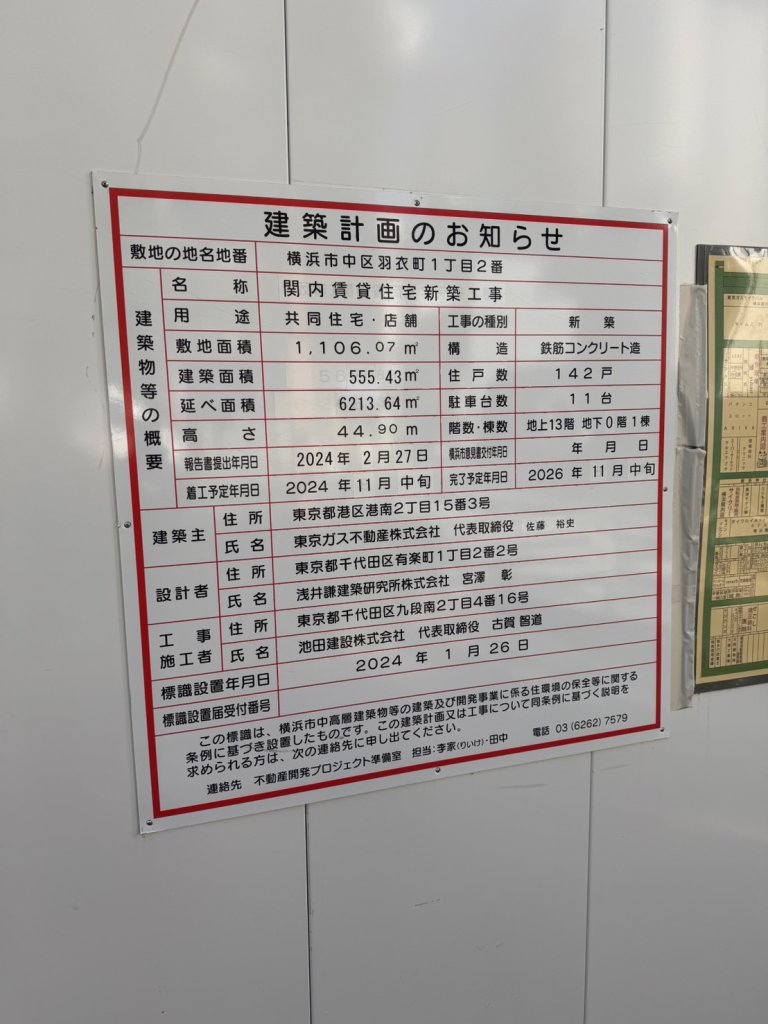 建築計画のお知らせ
敷地の地名地番 横浜市中区羽衣町1丁目2番
建築物等の概要
名称 関内賃貸住宅新築工事
用途 共同住宅・店舗 工事の種別 新築
敷地面積 1,106.07㎡ 構造 鉄筋コンクリート造
建築面積 555.43㎡ 住戸数 142戸
延べ面積 6213.64㎡ 駐車台数 11台
高さ 44.90m 階数・棟数 地上13階 地下0階1棟
報告書提出年月日 2024年 2月27日 横浜市意見書交付年月日 年 月 日
着工予定年月日 2024年11月中旬 完了予定年月日 2026年11月中旬
建築主 住所 東京都港区港南2丁目15番3号
氏名 東京ガス不動産株式会社 代表取締役 佐藤 裕史
設計者 住所 東京都千代田区有楽町1丁目2番2号
氏名 浅井謙建築研究所株式会社 宮澤 彰
工事施工者 住所 東京都千代田区九段南2丁目4番16号
氏名 池田建設株式会社 代表取締役 古賀 智道
標識設置年月日 2024年 1月26日
標識設置届受付番号
この標識は、横浜市中高層建築物等の建築及び開発事業に係る住環境の保全等に関する
条例に基づき設置したものです。この建築計画又は工事について同条例に基づく説明を
求められる方は、次の連絡先に申し出てください。
連絡先 不動産開発プロジェクト準備室 担当:李家(りいけ)・田中 電話 03(6262)7579